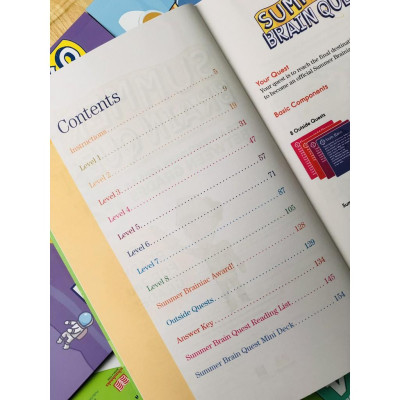 Contents
Instructions 5
Level 1 9
Level 2 19
Level 3 31
Level 4 47
Level 5 57
Level 6 71
Level 7 87
Level 8 105
Summer Brainiac Award! 128
Outside Quests 129
Answer Key 134
Summer Brain Quest Reading List 145
Summer Brain Quest Mini Deck 154
SUMM
BRAIN QUE
Your Quest
Your quest is to reach the final destinati
to become an official Summer Brainia
Basic Components
8 Outside Quests
Sum